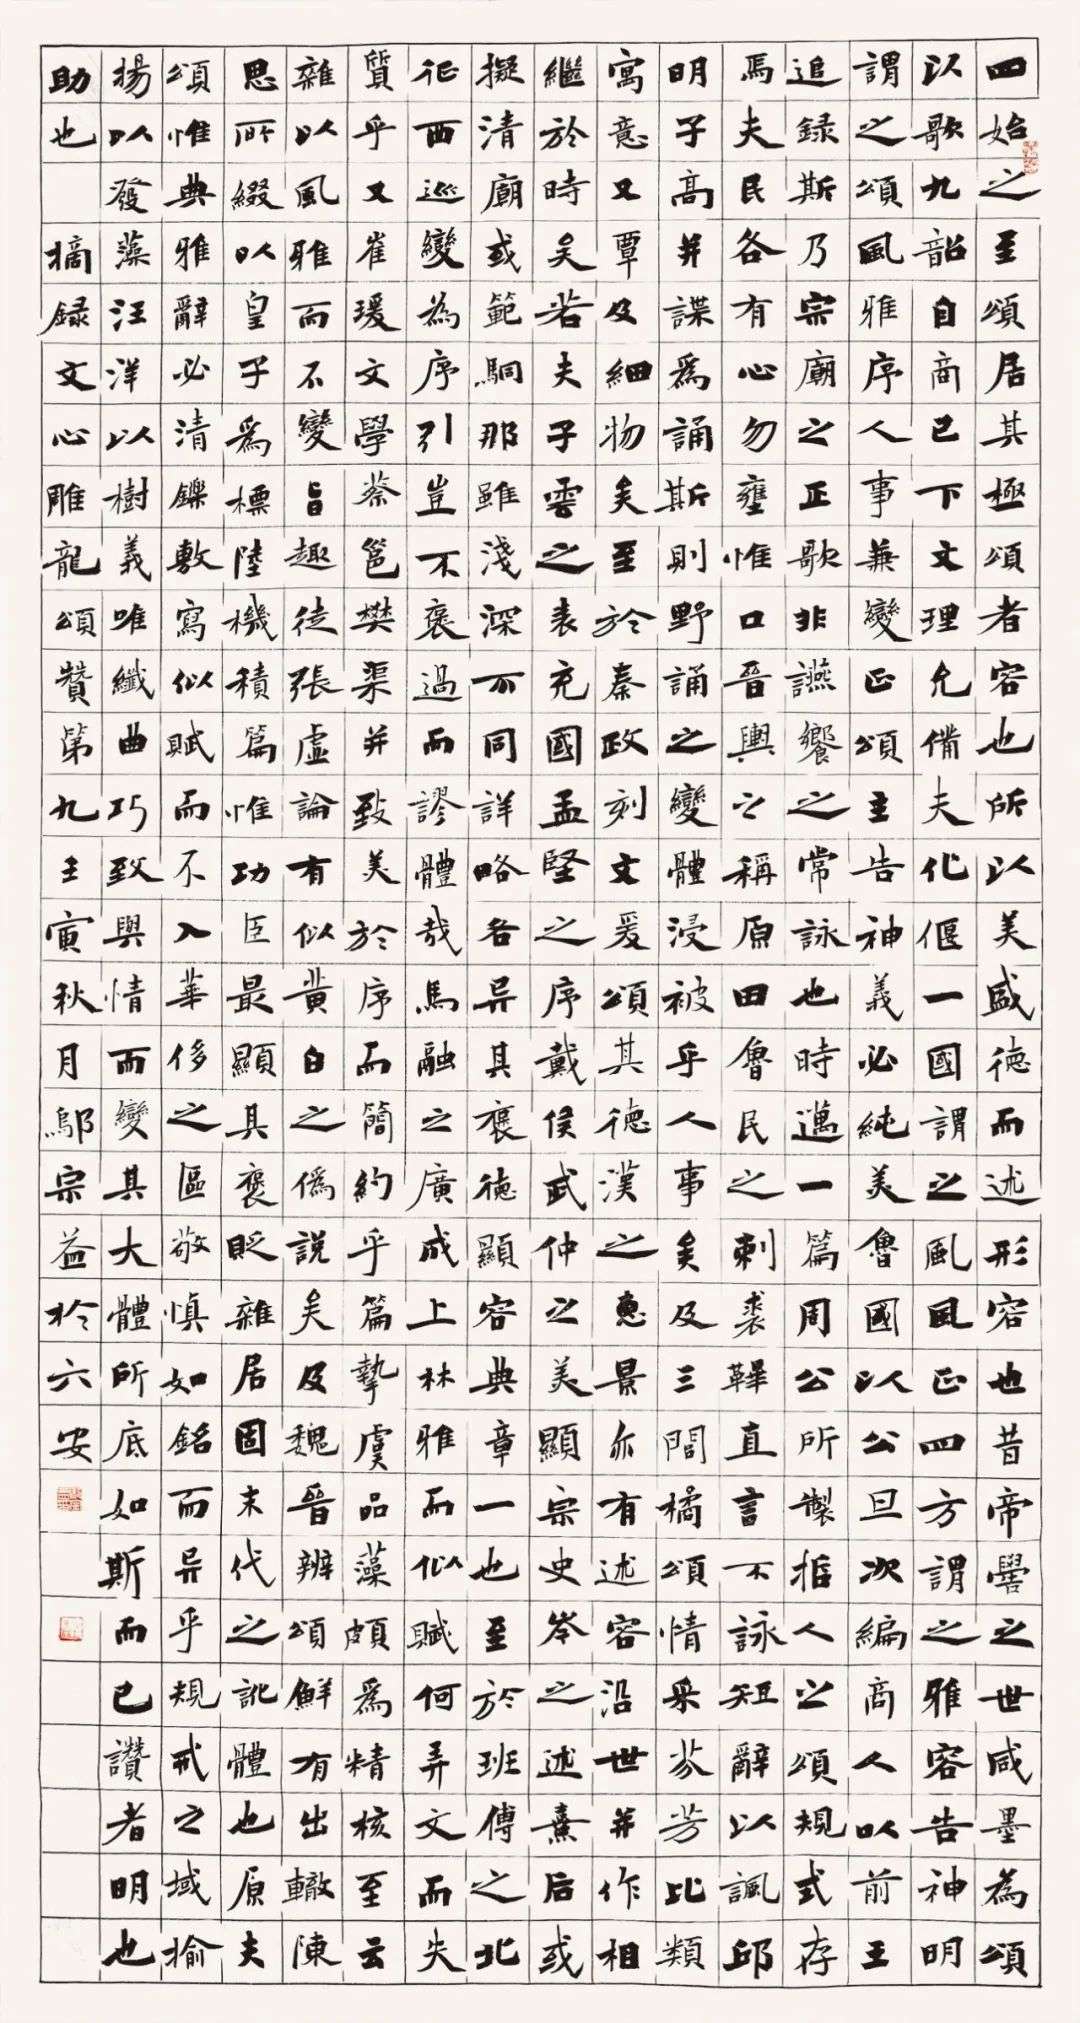 四始之至頌居其極頌者容也所以美盛德而述形容也昔帝嚳之世咸墨為頌
以歌九韶自商已下文理允備夫化偃一國謂之風風正四方謂之雅容告神明
謂之頌風雅序人事兼變正頌主告神義必純美魯國以公旦次編商人以前王
追録斯乃宗廟之正歌非讌饗之常詠也時邁一篇周公所製哲人之頌規式存
焉夫民各有心勿壅惟口晉輿之稱原田魯民之刺裘鞸直言不詠短辭以諷邱
明子高并諜爲誦斯則野誦之變體浸被乎人事矣及三閭橘頌情采芬芳比類
寓意又覃及細物矣至於秦政刻文爰頌其德漢之惠景亦有述容沿世并作相
繼於時矣若夫子雲之表充國孟堅之序戴侯武仲之美顯宗史岑之述熹后或
擬清廟或範駉那雖淺深不同詳略各异其褒德顯容典章一也至於班傅之北
征西巡變為序引豈不褒過而謬體哉馬融之廣成上林雅而似賦何弄文而失
質乎又崔瑗文學蔡邕樊渠并致美於序而簡約乎篇摯虞品藻頗爲精核至云
雜以風雅而不變旨趣徒張虛論有似黄白之僞説矣及魏晉辨頌鮮有出轍陳
思所綴以皇子爲標陸機積篇惟功臣最顯其褒貶雜居固末代之訛體也原夫
頌惟典雅辭必清鑠敷寫似賦而不入華侈之區敬慎如銘而异乎規戒之域揄
揚以發藻汪洋以樹義唯纖曲巧致與情而變其大體所底如斯而已讚者明也
助也 摘録文心雕龍頌贊第九壬寅秋月鄔宗益於六安